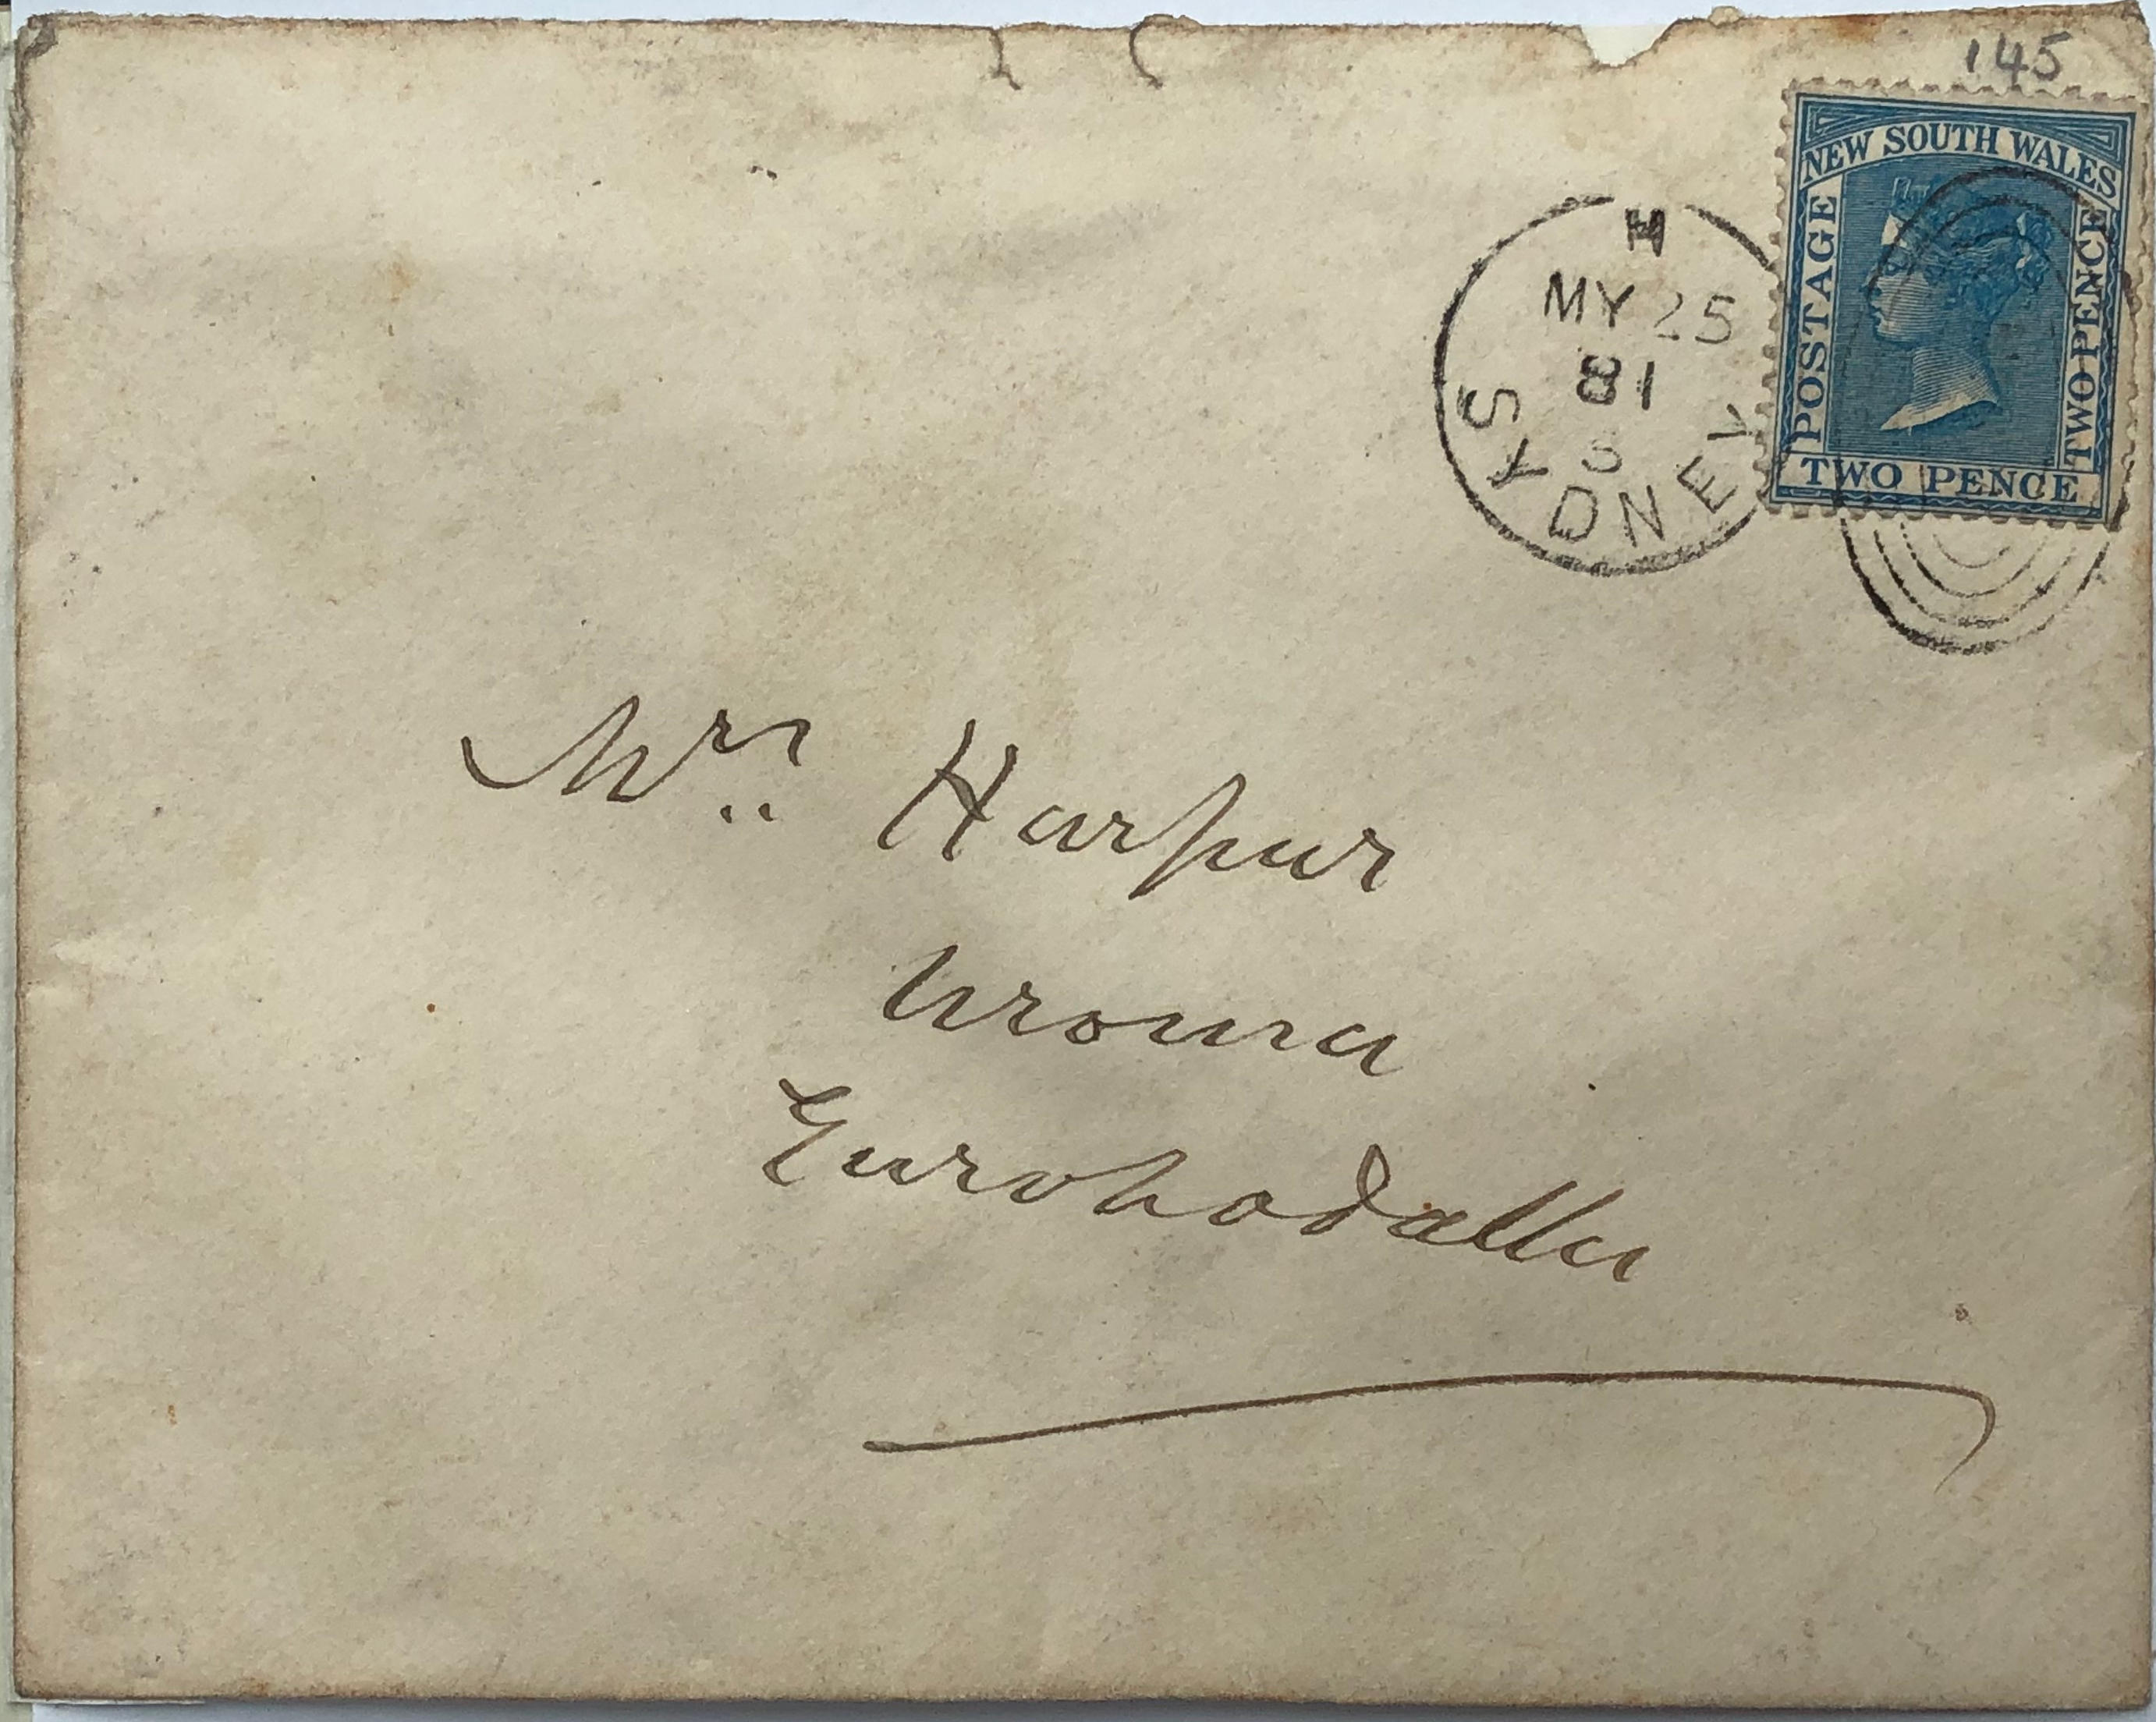 145
NEW SOUTH WALES
POSTAGE
TWO PENCE
TWO PENCE
H
MY 25
81
S
SYDNEY
Mrs Harpur
Urouna
Eurobodalla